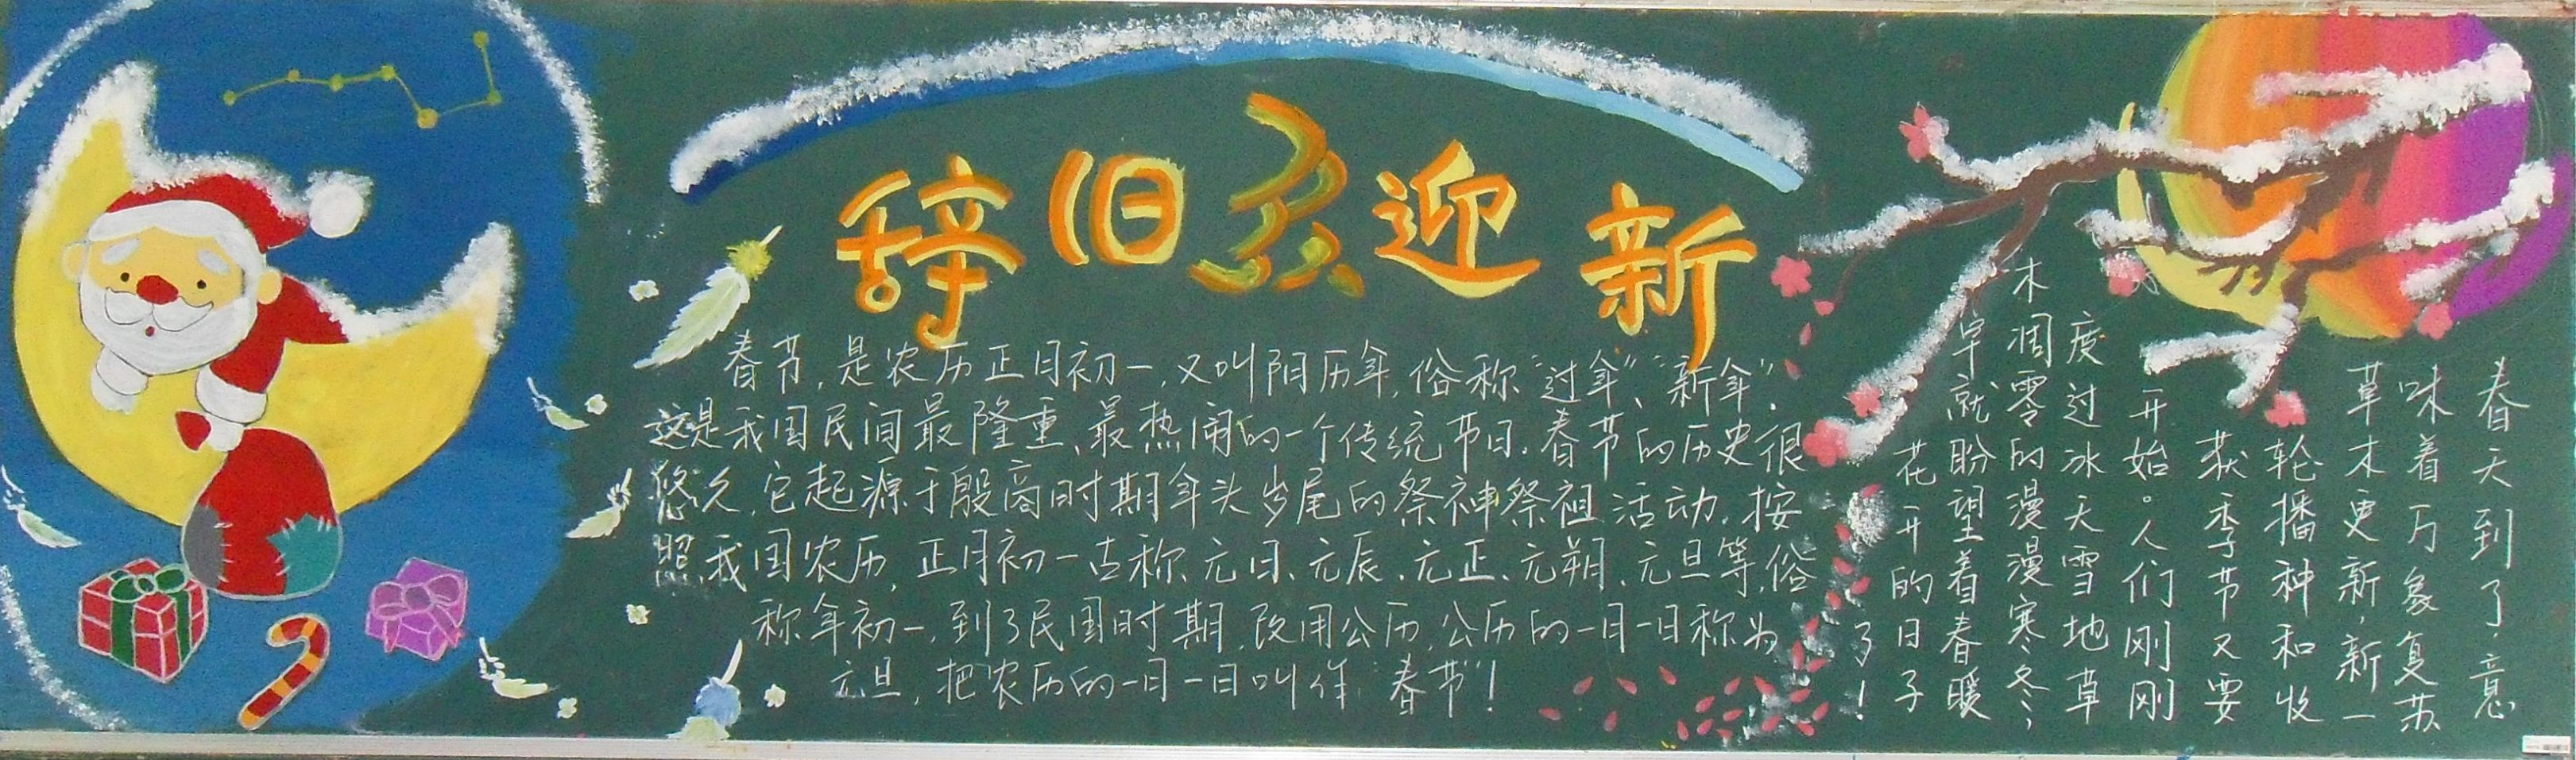 辞旧迎新
春节,是农历正月初一,又叫阳历年,俗称“过年”、“新年”.
这是我国民间最隆重、最热闹的一个传统节日.春节的历史很
悠久,它起源于殷商时期年头岁尾的祭神祭祖活动.按
照我国农历,正月初一古称元日、元辰、元正、元朔、元旦等,俗
称年初一,到了民国时期,改用公历,公历的一月一日称为
元旦,把农历的一月一日叫作“春节”!
春天到了,意
味着万象复苏
草木更新,新一
轮播种和收
获季节又要
开始。人们刚刚
度过冰天雪地草
木凋零的漫漫寒冬,
早就盼望着春暖
花开的日子
了!